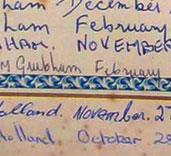 ham December
ham February
HAM. NOVEMBER
M Grubham February
Holland. November. 27
Holland October 28